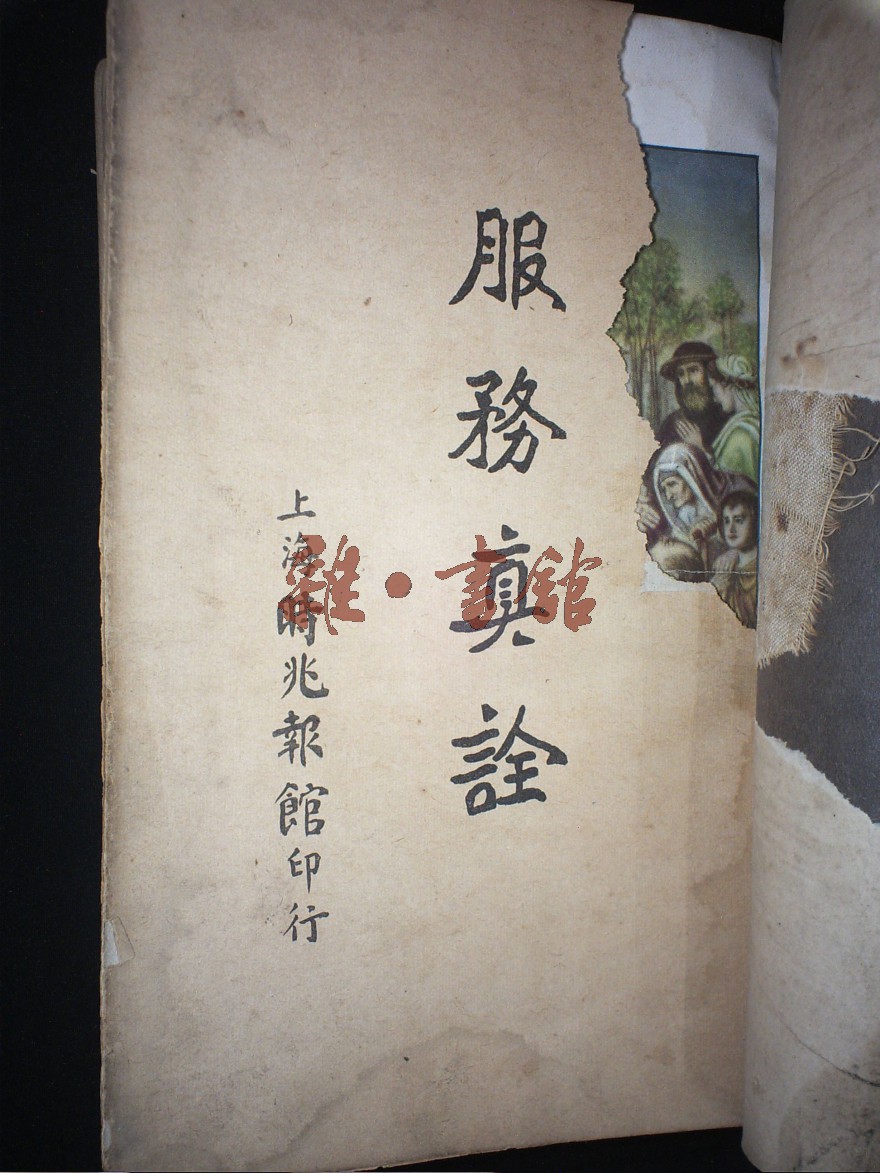 服務真詮
上海時兆報館印行
雜·書館